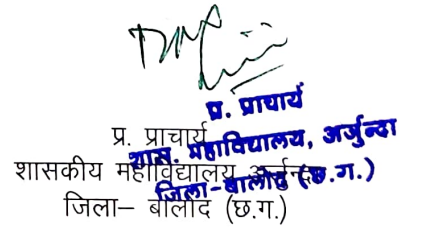 प्र. प्राचार्य
शास. महाविद्यालय, अर्जुन्दा
जिला-बालोद (छ.ग.)
प्र. प्राचार्य
शासकीय महाविद्यालय अर्जुन्दा
जिला– बालोद (छ.ग.)